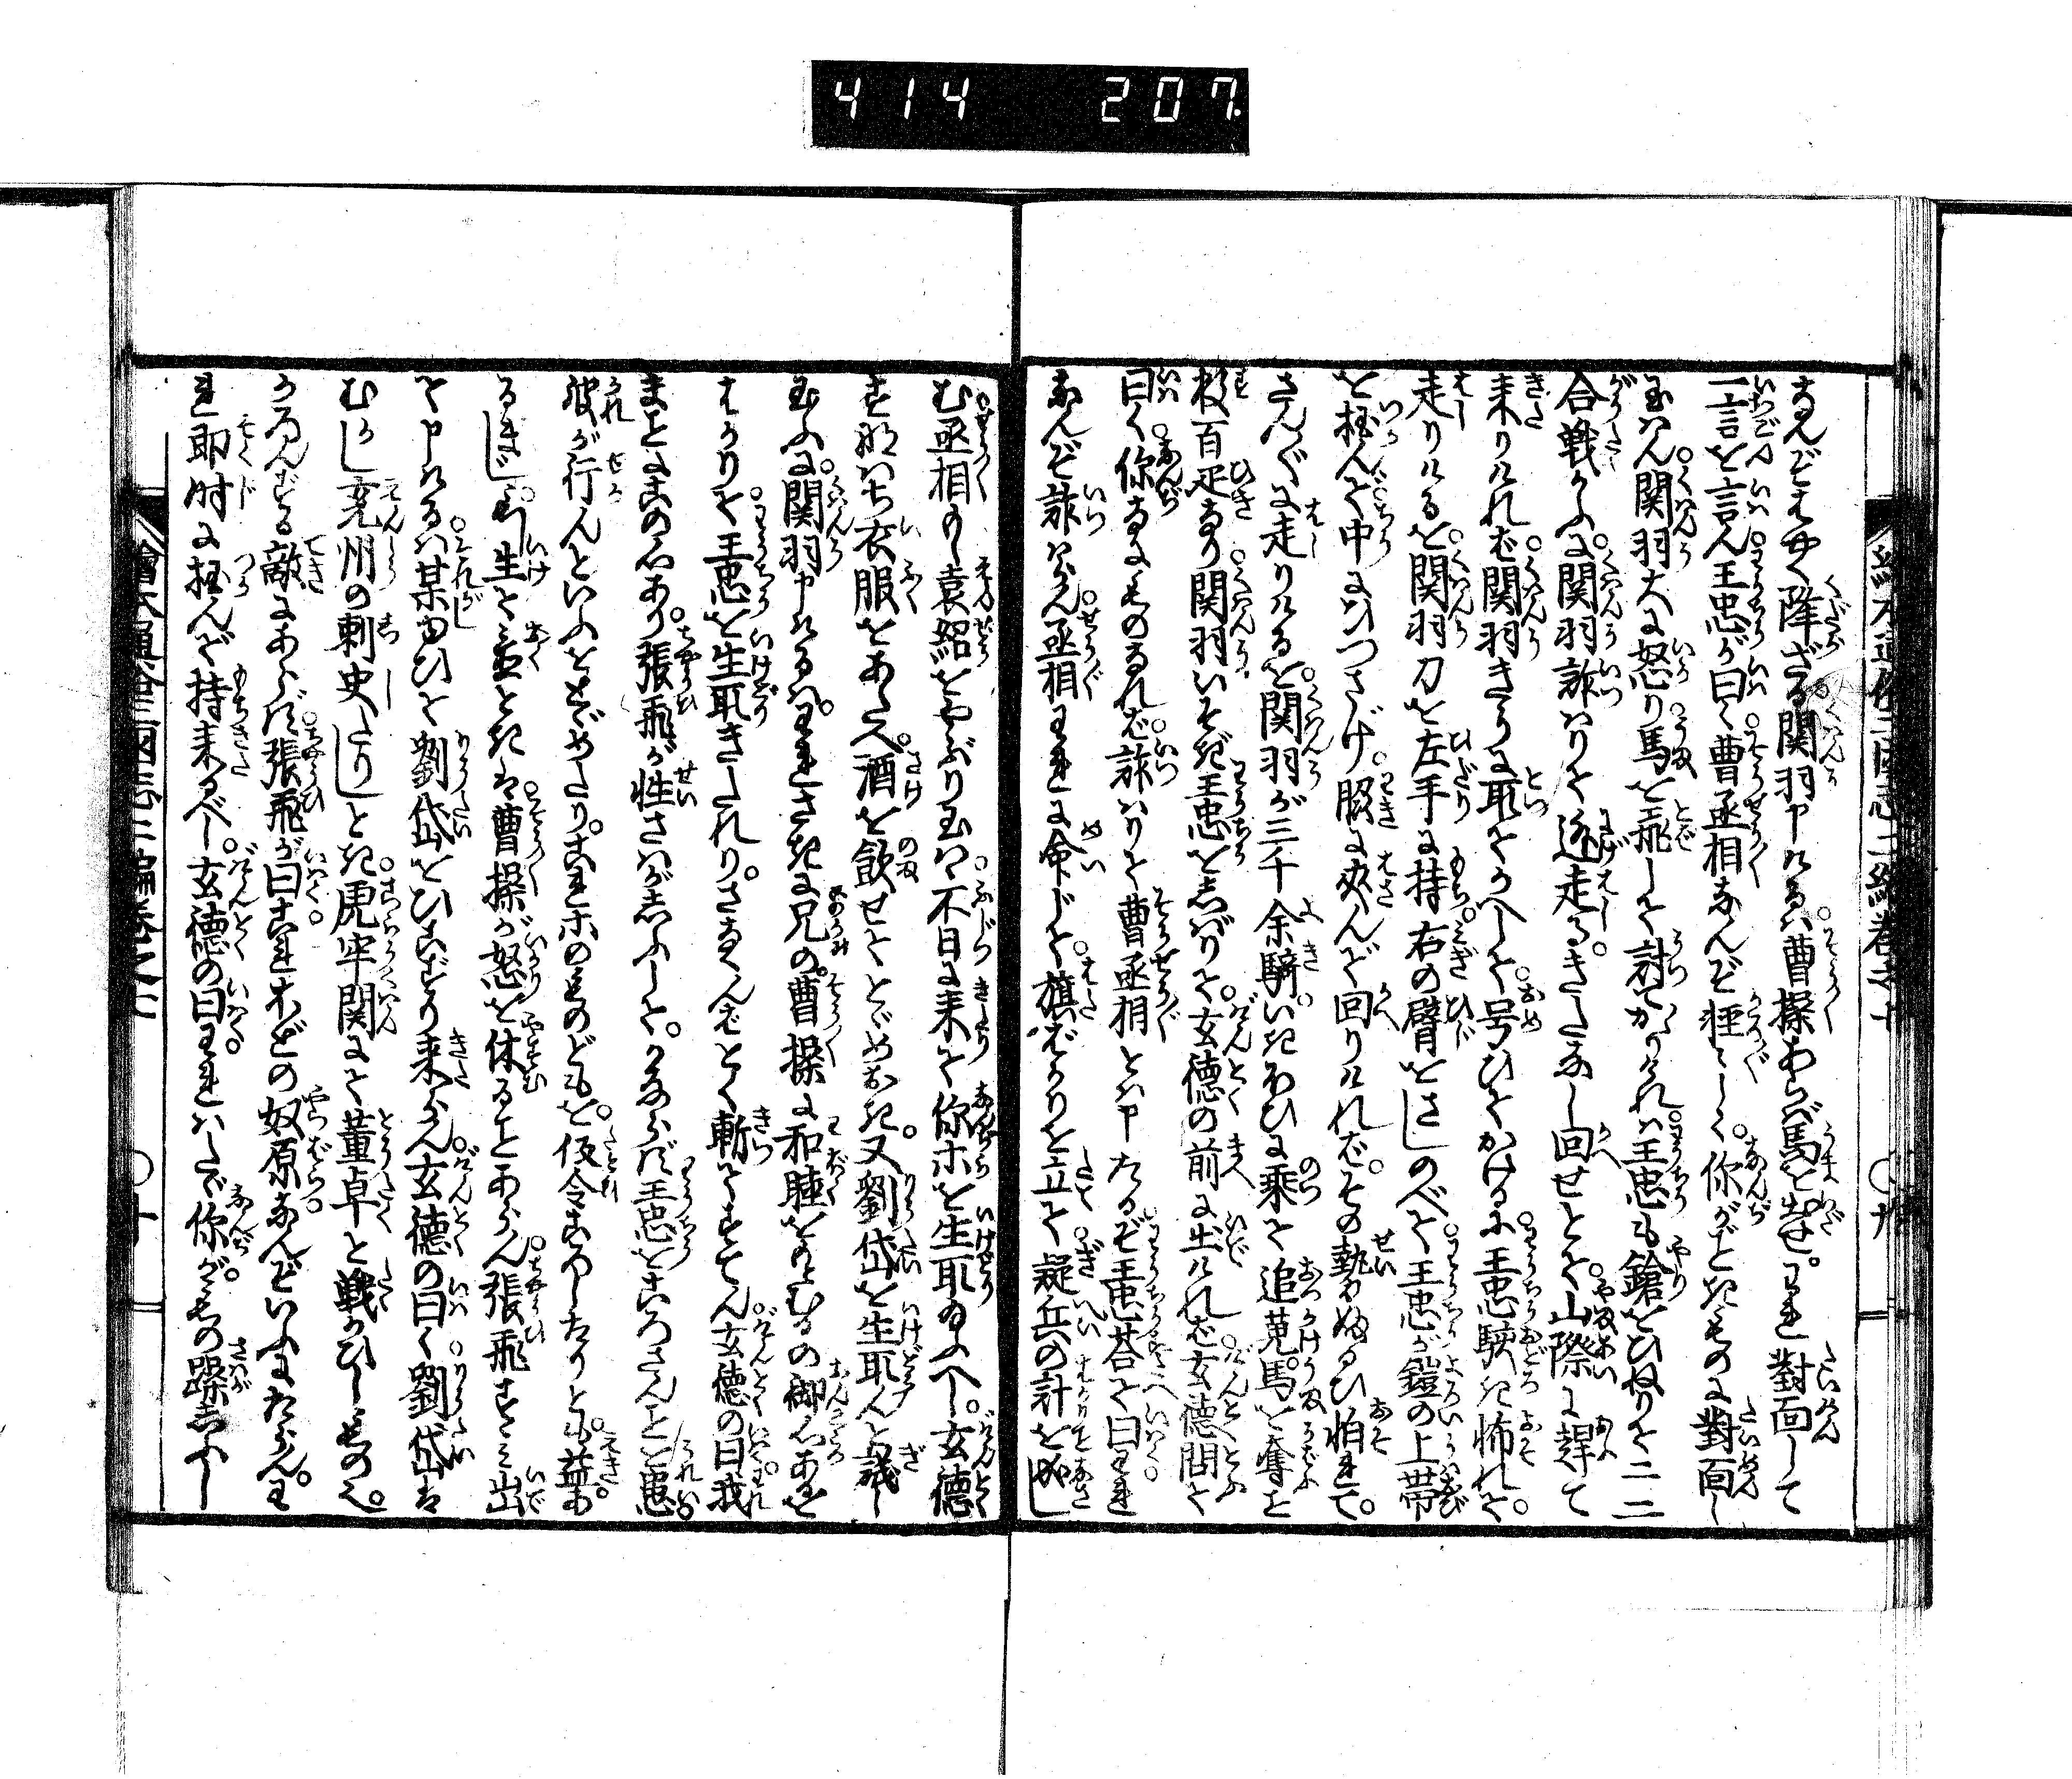 414 207
なんどはやく降ざる関羽申けるは曹操あらば馬を出せ。われ對面して
一言を言ん王忠が曰く曹丞相なんど軽〻しく。你がごときものに對面し
玉はん関羽大に怒り馬を飛して討てかかれは王忠も鎗をひねりて一二
合戦かふに関羽詐りて逃走る。きたなし回せとて山際に趕て
来りければ関羽きうに取てかへして号ひてかけるに王忠駭き怖れて。
走りけるを関羽刀を左手に持右の臂をさしのべて王忠が鎧の上帯
を掴んで中にひつさげ。脇に夾んで回りければ。その勢ふるひ怕れて。
さんざんに走りけるを関羽が三千余騎いきおひに乗て追蒐馬を奪こと
数百疋なり関羽いそぎ王忠をしばりて玄徳の前に出ければ玄徳問て
曰く你なにものなれば詐りて曹丞相とは申たるぞ王忠荅て曰われ
なんぞ詐はらん丞相われに命じて。旗ばかりを立て疑兵の計を成し
む丞相もし袁紹をやぶり玉はゞ不日に来て你ホを生取玉ふべし。玄徳
すなはち衣服をあたへ。酒を飲せてとゞめおき。又劉岱を生取んと議し
玉ふに関羽申けるは。われさきに兄の曹操に和睦をもとむるの御心あるを
はかりて王忠を生取きたれり。さなくんばとく斬てすてん玄徳の曰我
まことにこの心あり。張飛が性さはがしふして。かならず王忠をころさんことを患
彼が行んといふをとゞめたり。これホのものどもを。仮令ころしたりとも。益な
るまじ。もし生て置ときは曹操が怒を休ることあらん張飛すゝみ出
て申けるは某ゆひて劉岱をひきずり来らん。玄徳の曰く劉岱は
むかし兗州の刺史たりしとき。虎牢関にて董卓と戦かひしものなり。
かろんずる敵にあらず。張飛が曰これほどの奴原なんどいふにたらん。わ
れ即時に掴んで持来るべし。玄徳の曰われはたゞ你が。その躁がしふし